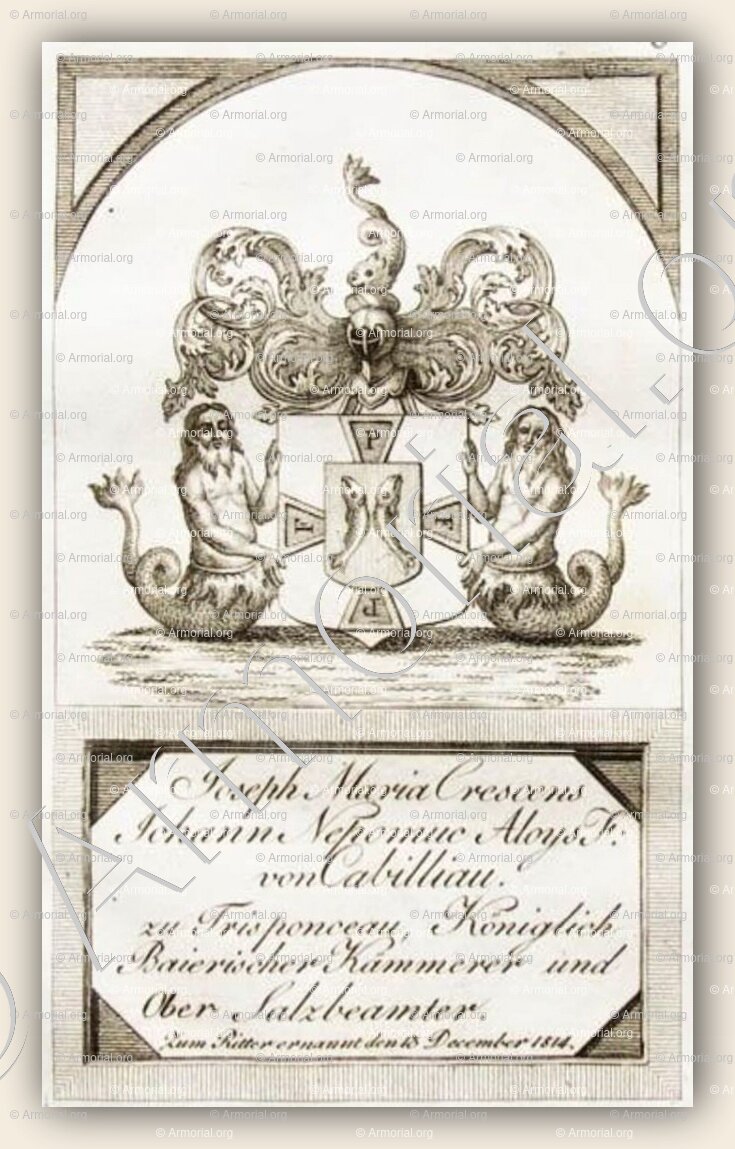 F
F F
P
Joseph Maria Crescens
Johann Nepomuc Aloys F.
von Cabilliau.
zu Trisponceau, Königlich
Baierischer Kämmerer und
Ober Salzbeamter
zum Ritter ernannt den 13 December 1814.
© Armorial.org